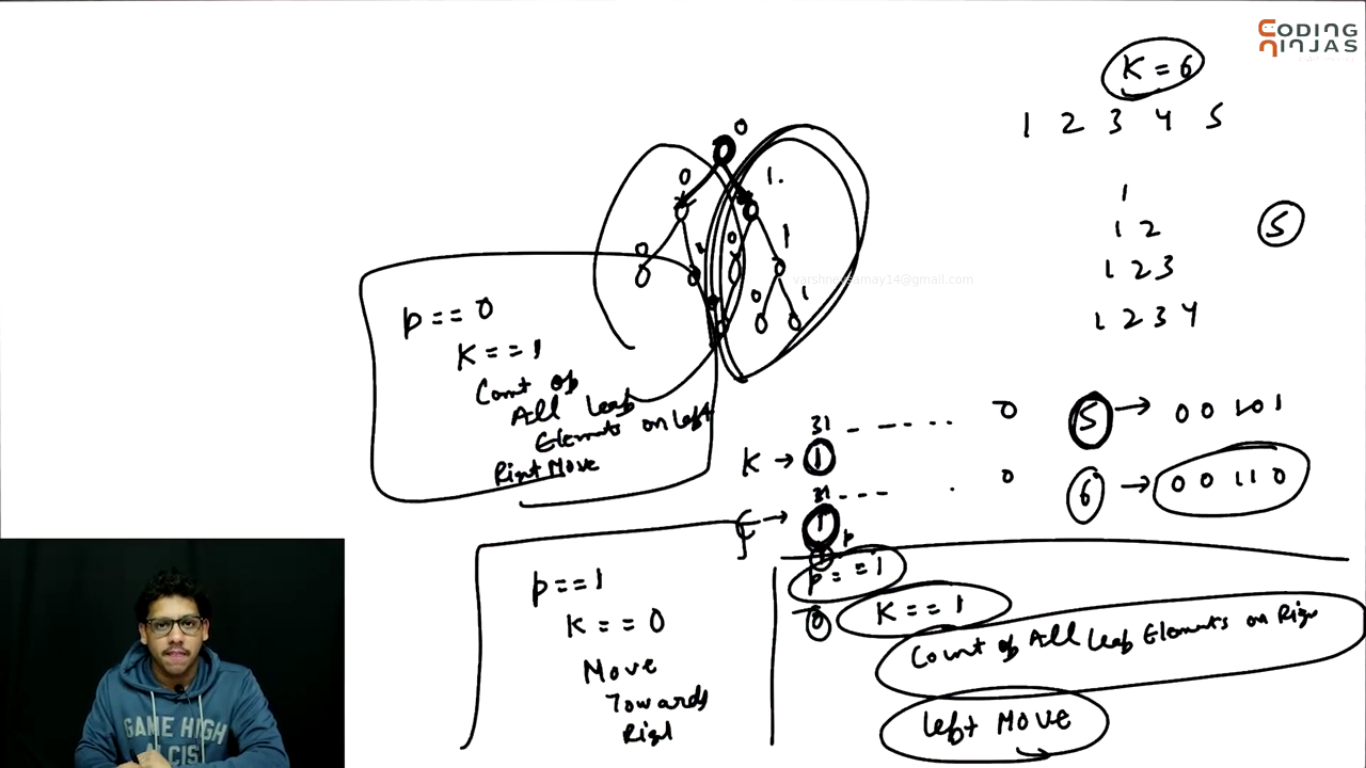 CODING
NINJAS
K = 6
1 2 3 4 5
1
1 2
1 2 3
1 2 3 4
5
0
0 1.
0 1 0 1
0 1
varshneysamay14@gmail.com
p == 0
K == 1
Count of
All leaf
Elements on left
Right Move
31 - - - - . . . 0
K → 1
31 - - - . 0
1
p
5 → 0 0 1 0 1
6 → 0 0 1 1 0
p == 1
K == 0
Move
Towards
Right
p == 1
0
K == 1
Count of All leaf Elements on Right
left Move
GAME HIGH